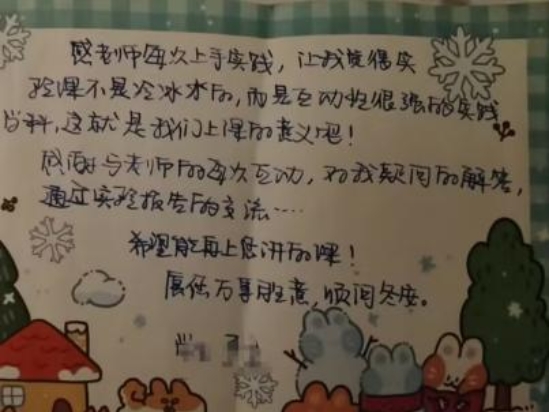 感老师每次上手实践，让我觉得实
验课不是冷冰冰的，而是互动性很强的实践
学科，这就是我们上课的意义吧！
感谢与老师的每次互动，对我疑问的解答，
通过实验报告的交流……
希望能再上您讲的课！
愿您万事胜意，顺问冬安。